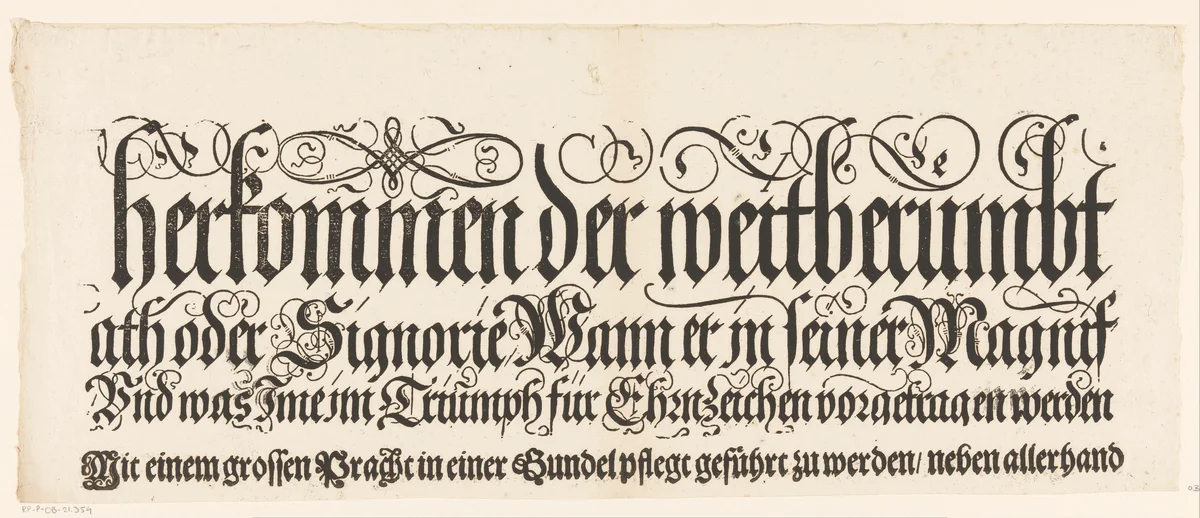 herkommen der weitberumbt
ath oder Signorie Wann er in seiner Magnif
Vnd was Ime im Triumph für Ehrnzeichen vorgetragen werden
Mit einem grossen Pracht in einer Gundel pflegt geführt zu werden/ neben allerhand
RP-P-OB-21.354
03